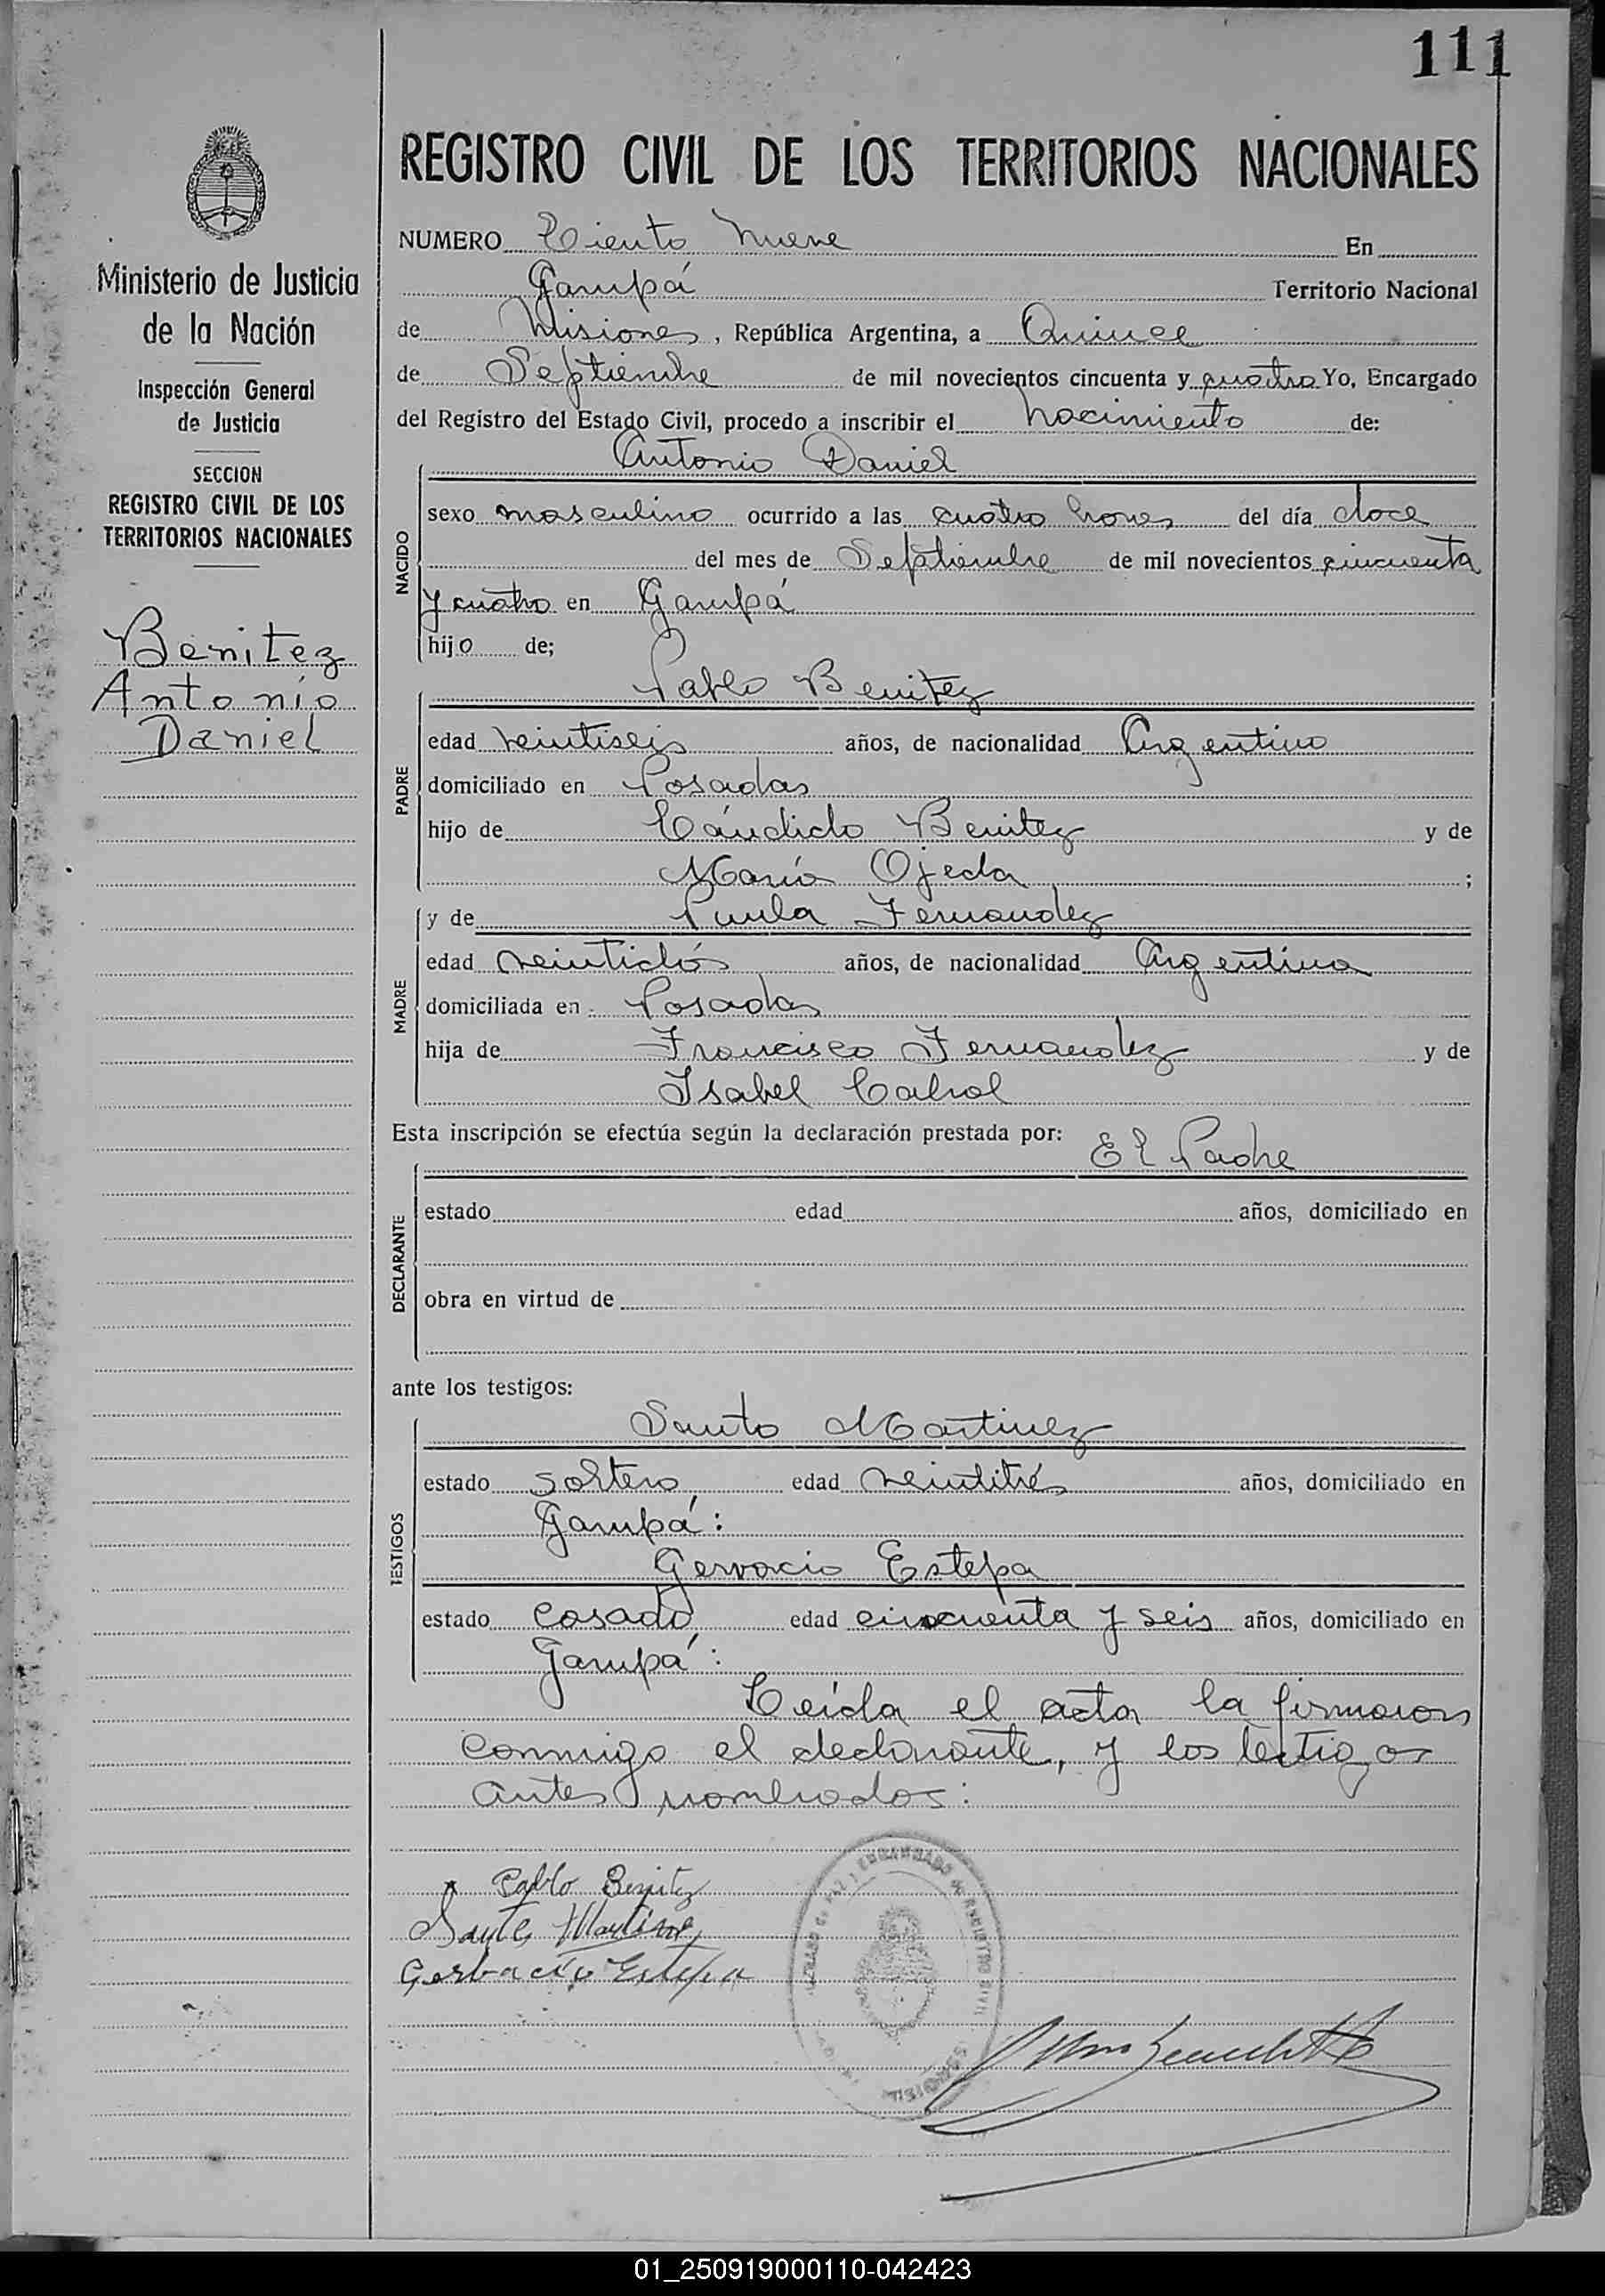 111
REGISTRO CIVIL DE LOS TERRITORIOS NACIONALES
Ministerio de Justicia
de la Nación
Inspección General
de Justicia
SECCION
REGISTRO CIVIL DE LOS
TERRITORIOS NACIONALES
Benitez
Antonio
Daniel
NUMERO Ciento Nueve En
Garupá Territorio Nacional
de Misiones, República Argentina, a Quince
de Septiembre de mil novecientos cincuenta y cuatro Yo, Encargado
del Registro del Estado Civil, procedo a inscribir el nacimiento de:
Antonio Daniel
NACIDO
sexo masculino ocurrido a las cuatro horas del día doce
del mes de Septiembre de mil novecientos cincuenta
y cuatro en Garupá
hijo de;
Pablo Benitez
PADRE
edad veintiseis años, de nacionalidad Argentino
domiciliado en Posadas
hijo de Cándido Benitez y de
María Ojeda ;
y de Paula Fernandez
MADRE
edad veintidós años, de nacionalidad Argentina
domiciliada en Posadas
hija de Francisco Fernandez y de
Isabel Cabral
Esta inscripción se efectúa según la declaración prestada por: El Padre
DECLARANTE
estado edad años, domiciliado en
obra en virtud de
ante los testigos:
Santo Martinez
TESTIGOS
estado soltero, edad veintitrés años, domiciliado en
Garupá:
Gervacio Estepa
estado casado, edad cincuenta y seis años, domiciliado en
Garupá:
Leída el acta la firmaron
conmigo el declarante, y los testigos
antes nombrados:
Pablo Benitez
Santo Martinez
Gerbacio Estepa
01_250919000110-042423